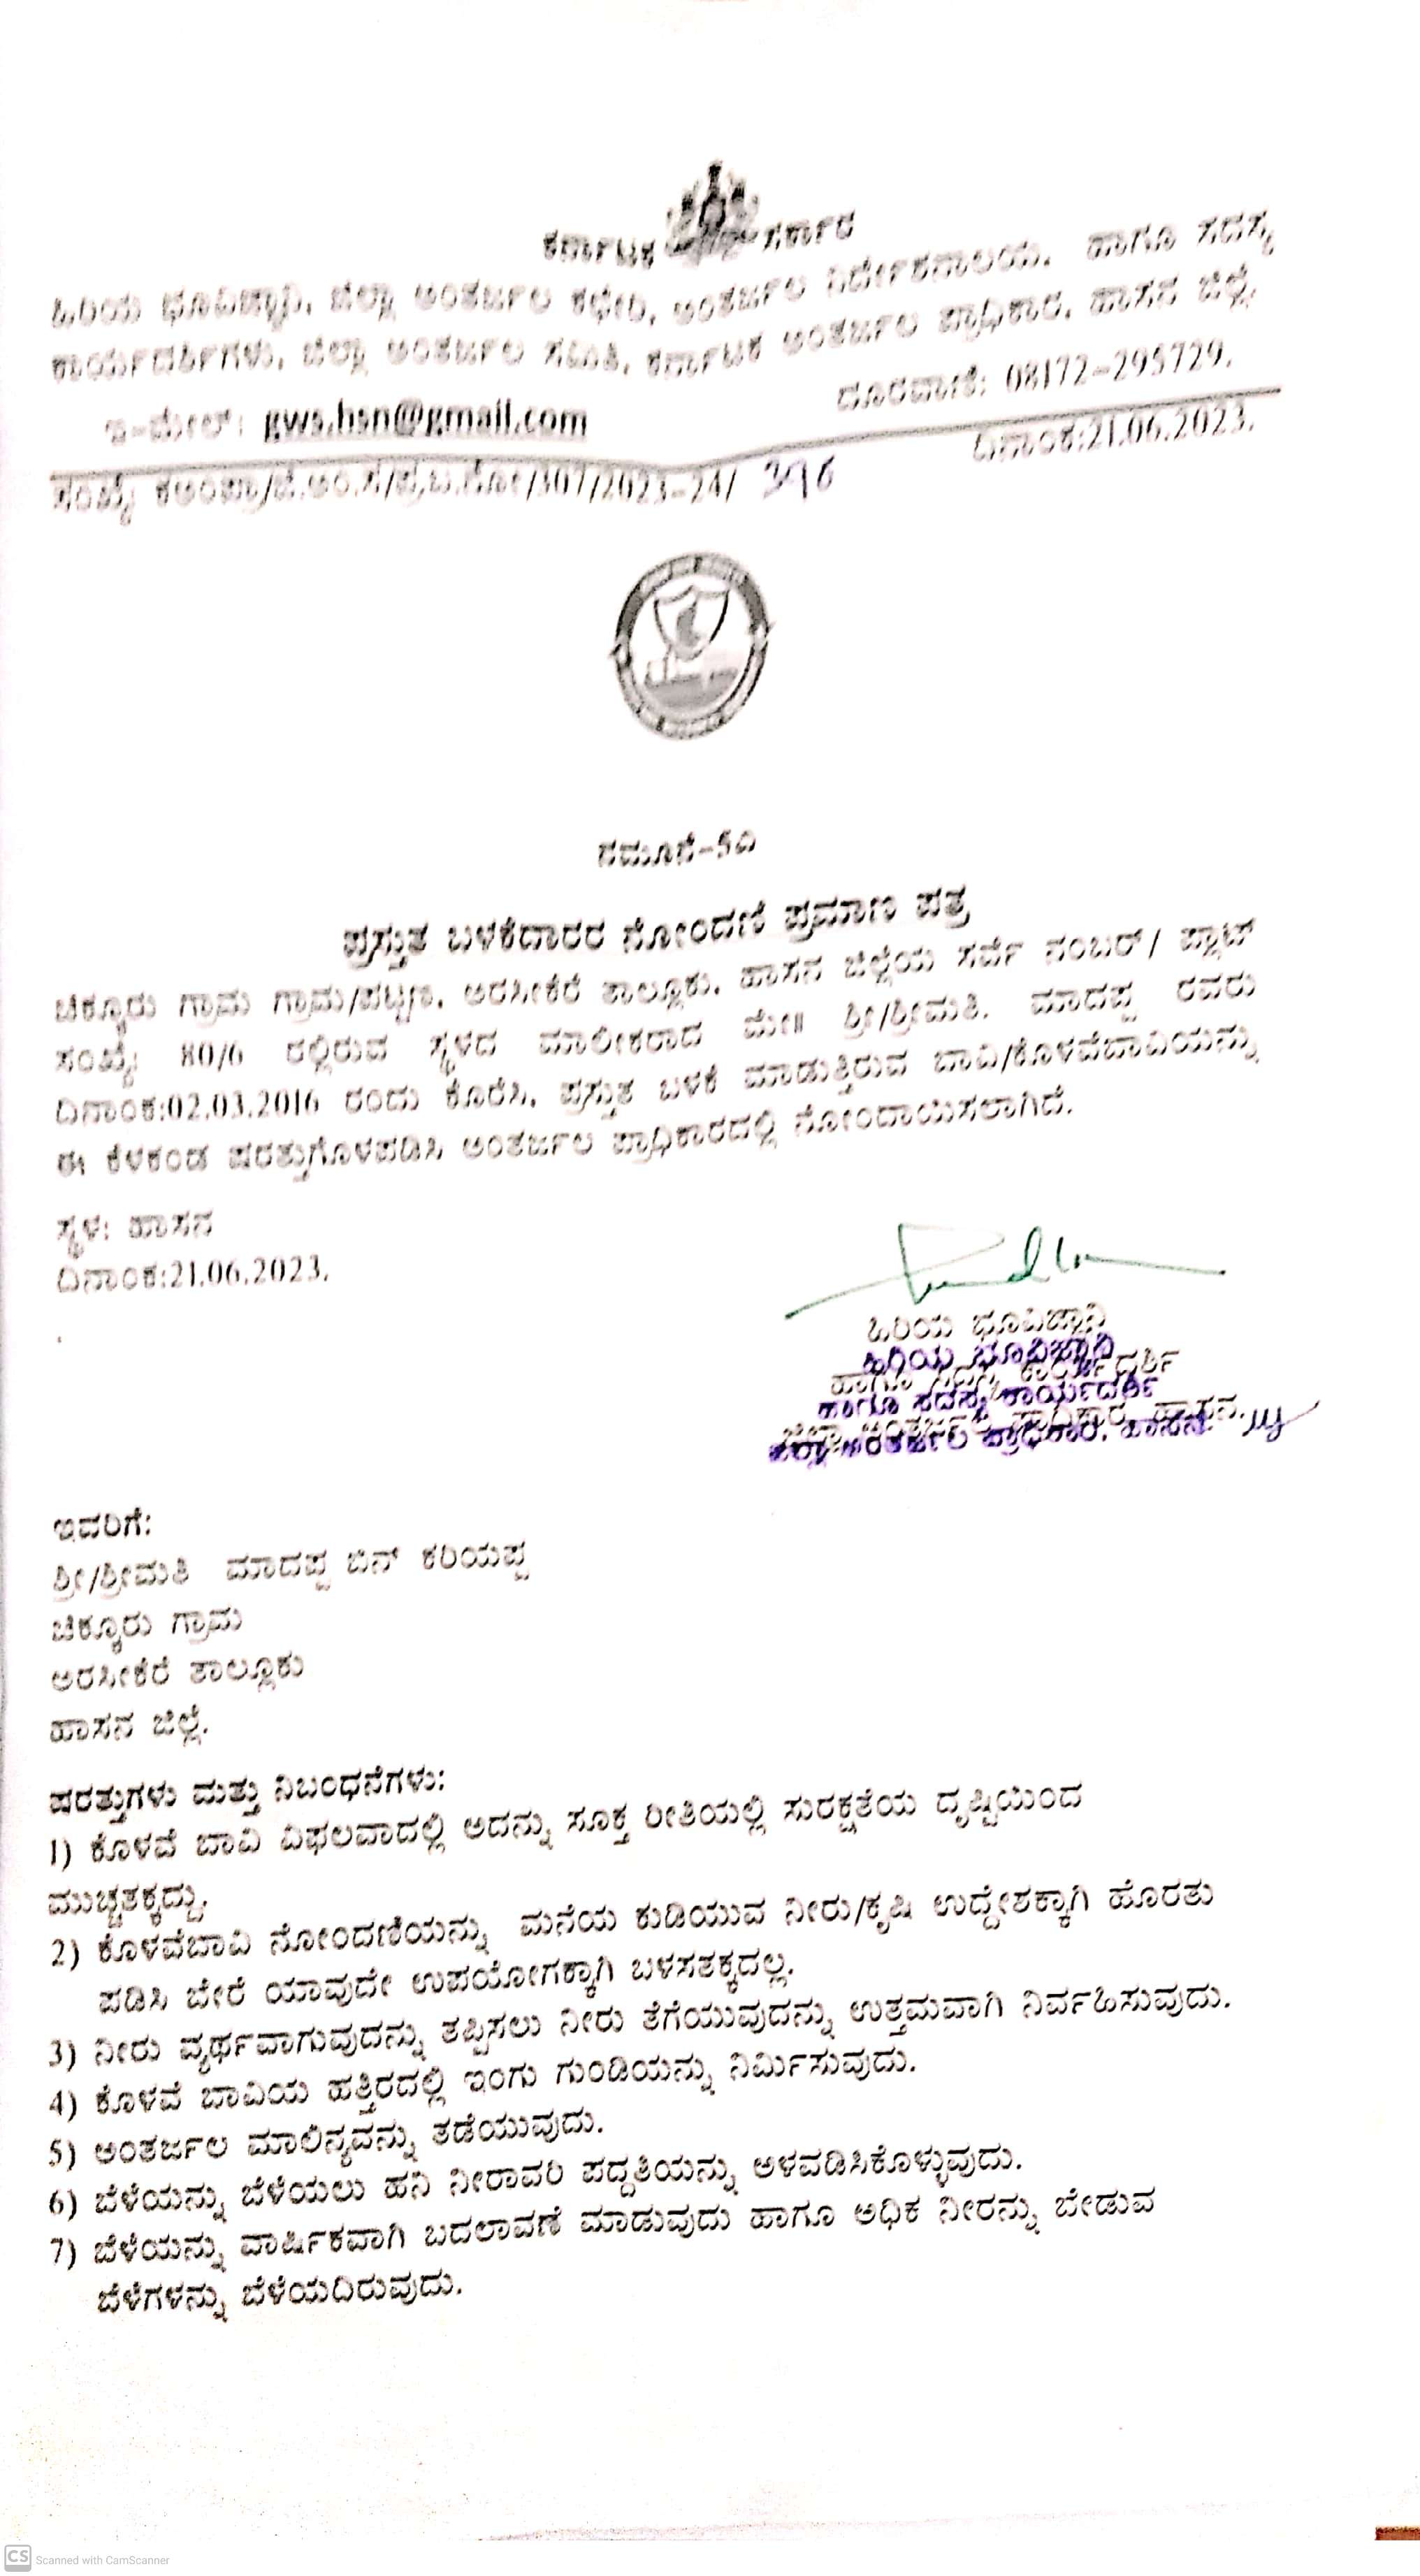 ಕರ್ನಾಟಕ ಸರ್ಕಾರ
ಹಿರಿಯ ಭೂವಿಜ್ಞಾನಿ, ಜಿಲ್ಲಾ ಅಂತರ್ಜಲ ಕಛೇರಿ, ಅಂತರ್ಜಲ ನಿರ್ದೇಶನಾಲಯ, ಹಾಗೂ ಸದಸ್ಯ
ಕಾರ್ಯದರ್ಶಿಗಳು, ಜಿಲ್ಲಾ ಅಂತರ್ಜಲ ಸಮಿತಿ, ಕರ್ನಾಟಕ ಅಂತರ್ಜಲ ಪ್ರಾಧಿಕಾರ, ಹಾಸನ ಜಿಲ್ಲೆ.
ಇ-ಮೇಲ್: gws.hsn@gmail.com ದೂರವಾಣಿ: 08172-295729.
ಸಂಖ್ಯೆ: ಕಅಂಪ್ರಾ/ಜಿ.ಅಂ.ಸ/ಪ್ರ.ಬ.ನೋ/307/2023-24/ 396 ದಿನಾಂಕ:21.06.2023.
ನಮೂನೆ-5ಎ
ಪ್ರಸ್ತುತ ಬಳಕೆದಾರರ ನೋಂದಣಿ ಪ್ರಮಾಣ ಪತ್ರ
ಚಿಕ್ಕೂರು ಗ್ರಾಮ ಗ್ರಾಮ/ಪಟ್ಟಣ, ಅರಸೀಕೆರೆ ತಾಲ್ಲೂಕು, ಹಾಸನ ಜಿಲ್ಲೆಯ ಸರ್ವೆ ನಂಬರ್/ ಪ್ಲಾಟ್
ಸಂಖ್ಯೆ: 80/6 ರಲ್ಲಿರುವ ಸ್ಥಳದ ಮಾಲೀಕರಾದ ಮೇ॥ ಶ್ರೀ/ಶ್ರೀಮತಿ. ಮಾದಪ್ಪ ರವರು
ದಿನಾಂಕ:02.03.2016 ರಂದು ಕೊರೆಸಿ, ಪ್ರಸ್ತುತ ಬಳಕೆ ಮಾಡುತ್ತಿರುವ ಬಾವಿ/ಕೊಳವೆಬಾವಿಯನ್ನು
ಈ ಕೆಳಕಂಡ ಷರತ್ತುಗೊಳಪಡಿಸಿ ಅಂತರ್ಜಲ ಪ್ರಾಧಿಕಾರದಲ್ಲಿ ನೋಂದಾಯಿಸಲಾಗಿದೆ.
ಸ್ಥಳ: ಹಾಸನ
ದಿನಾಂಕ:21.06.2023.
ಹಿರಿಯ ಭೂವಿಜ್ಞಾನಿ
ಹಿರಿಯ ಭೂವಿಜ್ಞಾನಿ
ಹಾಗೂ ಸದಸ್ಯ ಕಾರ್ಯದರ್ಶಿ
ಹಾಗೂ ಸದಸ್ಯ ಕಾರ್ಯದರ್ಶಿ
ಜಿಲ್ಲಾ ಅಂತರ್ಜಲ ಪ್ರಾಧಿಕಾರ, ಹಾಸನ.
ಜಿಲ್ಲಾ ಅಂತರ್ಜಲ ಪ್ರಾಧಿಕಾರ, ಹಾಸನ
ಇವರಿಗೆ:
ಶ್ರೀ/ಶ್ರೀಮತಿ ಮಾದಪ್ಪ ಬಿನ್ ಕರಿಯಪ್ಪ
ಚಿಕ್ಕೂರು ಗ್ರಾಮ
ಅರಸೀಕೆರೆ ತಾಲ್ಲೂಕು
ಹಾಸನ ಜಿಲ್ಲೆ.
ಷರತ್ತುಗಳು ಮತ್ತು ನಿಬಂಧನೆಗಳು:
1) ಕೊಳವೆ ಬಾವಿ ವಿಫಲವಾದಲ್ಲಿ ಅದನ್ನು ಸೂಕ್ತ ರೀತಿಯಲ್ಲಿ ಸುರಕ್ಷತೆಯ ದೃಷ್ಟಿಯಿಂದ
ಮುಚ್ಚತಕ್ಕದ್ದು.
2) ಕೊಳವೆಬಾವಿ ನೋಂದಣಿಯನ್ನು ಮನೆಯ ಕುಡಿಯುವ ನೀರು/ಕೃಷಿ ಉದ್ದೇಶಕ್ಕಾಗಿ ಹೊರತು
ಪಡಿಸಿ ಬೇರೆ ಯಾವುದೇ ಉಪಯೋಗಕ್ಕಾಗಿ ಬಳಸತಕ್ಕದಲ್ಲ.
3) ನೀರು ವ್ಯರ್ಥವಾಗುವುದನ್ನು ತಪ್ಪಿಸಲು ನೀರು ತೆಗೆಯುವುದನ್ನು ಉತ್ತಮವಾಗಿ ನಿರ್ವಹಿಸುವುದು.
4) ಕೊಳವೆ ಬಾವಿಯ ಹತ್ತಿರದಲ್ಲಿ ಇಂಗು ಗುಂಡಿಯನ್ನು ನಿರ್ಮಿಸುವುದು.
5) ಅಂತರ್ಜಲ ಮಾಲಿನ್ಯವನ್ನು ತಡೆಯುವುದು.
6) ಬೆಳೆಯನ್ನು ಬೆಳೆಯಲು ಹನಿ ನೀರಾವರಿ ಪದ್ದತಿಯನ್ನು ಅಳವಡಿಸಿಕೊಳ್ಳುವುದು.
7) ಬೆಳೆಯನ್ನು ವಾರ್ಷಿಕವಾಗಿ ಬದಲಾವಣೆ ಮಾಡುವುದು ಹಾಗೂ ಅಧಿಕ ನೀರನ್ನು ಬೇಡುವ
ಬೆಳೆಗಳನ್ನು ಬೆಳೆಯದಿರುವುದು.
CS Scanned with CamScanner